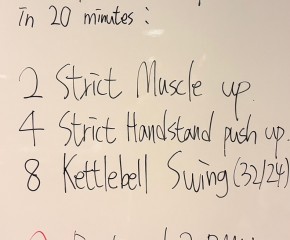 In 20 minutes:
2 Strict Muscle up.
4 Strict Handstand push up.
8 Kettlebell Swing (32/24)